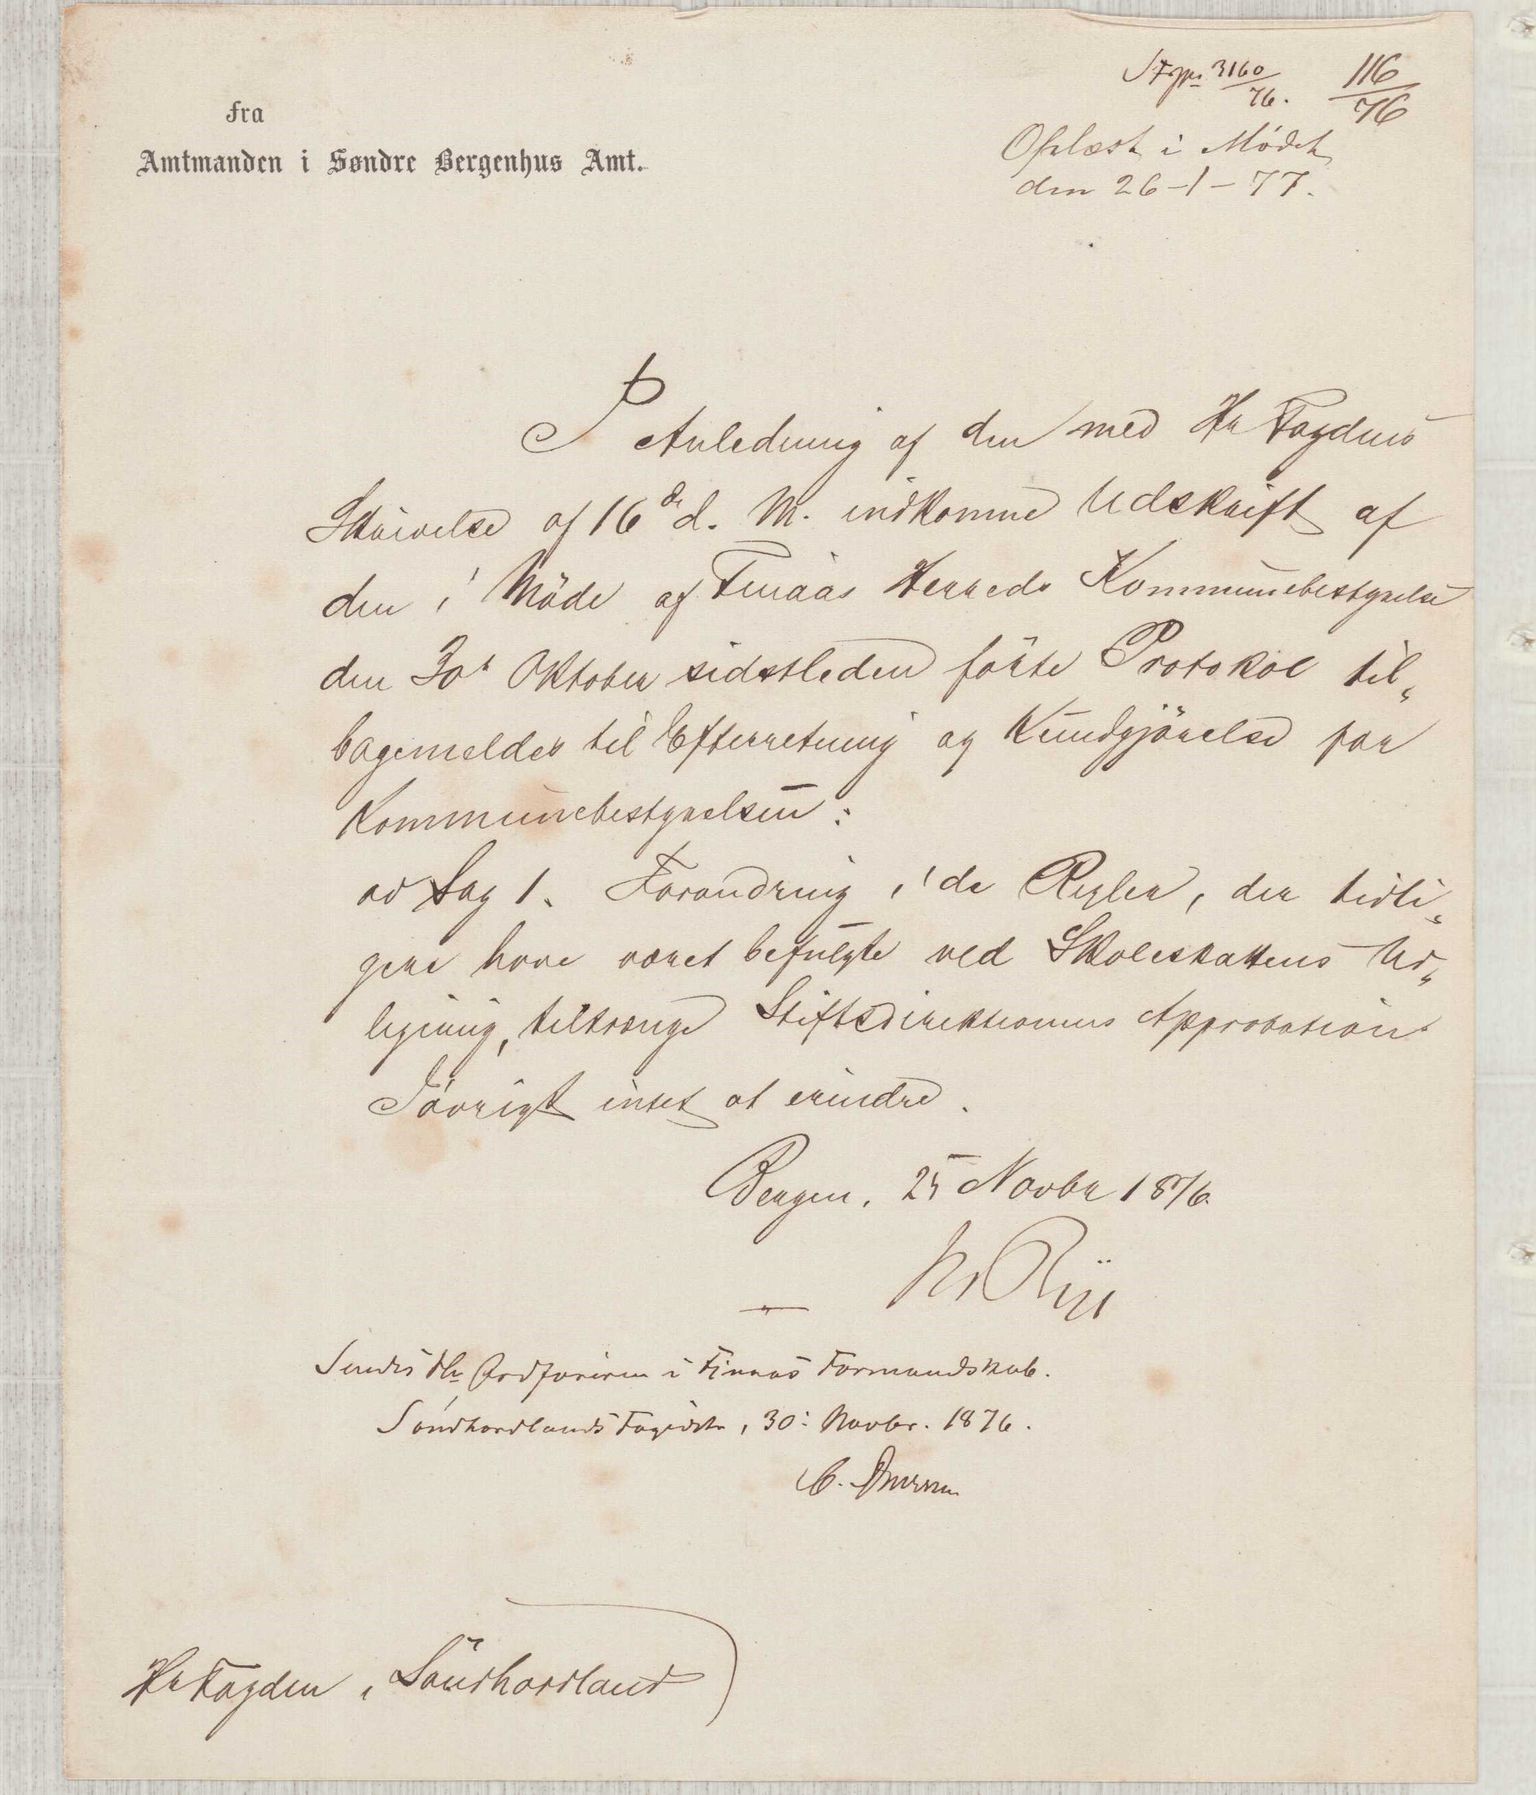 fra
Amtmanden i Søndre Bergenhus Amt.
3160/76.
116/76
Oplæst i Mødet
den 26-1-77.
I Anledning af den med Hr Fogdens
Skrivelse af 16de d. M. indkomne Udskrift af
den i Möde af Finaas Herreds Kommunebestyrelse
den 30t Oktober sidstleden förte Protokol til„
bagemeldes til Efterretning og Kundgjörelse for
Kommunebestyrelsen:
ad Sag 1. Forandring i de Regler, der tidli„
gere have været befulgte ved Skoleskattens Ud„
ligning, tiltrænge Stiftsdirektionens Approbation.
Iövrigt intet at erindre.
Bergen, 25 Novbr 1876.
Sendes Hr Ordføreren i Finnås Formandskab.
Söndhordlands Fogderi, 30: Novbr. 1876.
Hr Fogden i Söndhordland